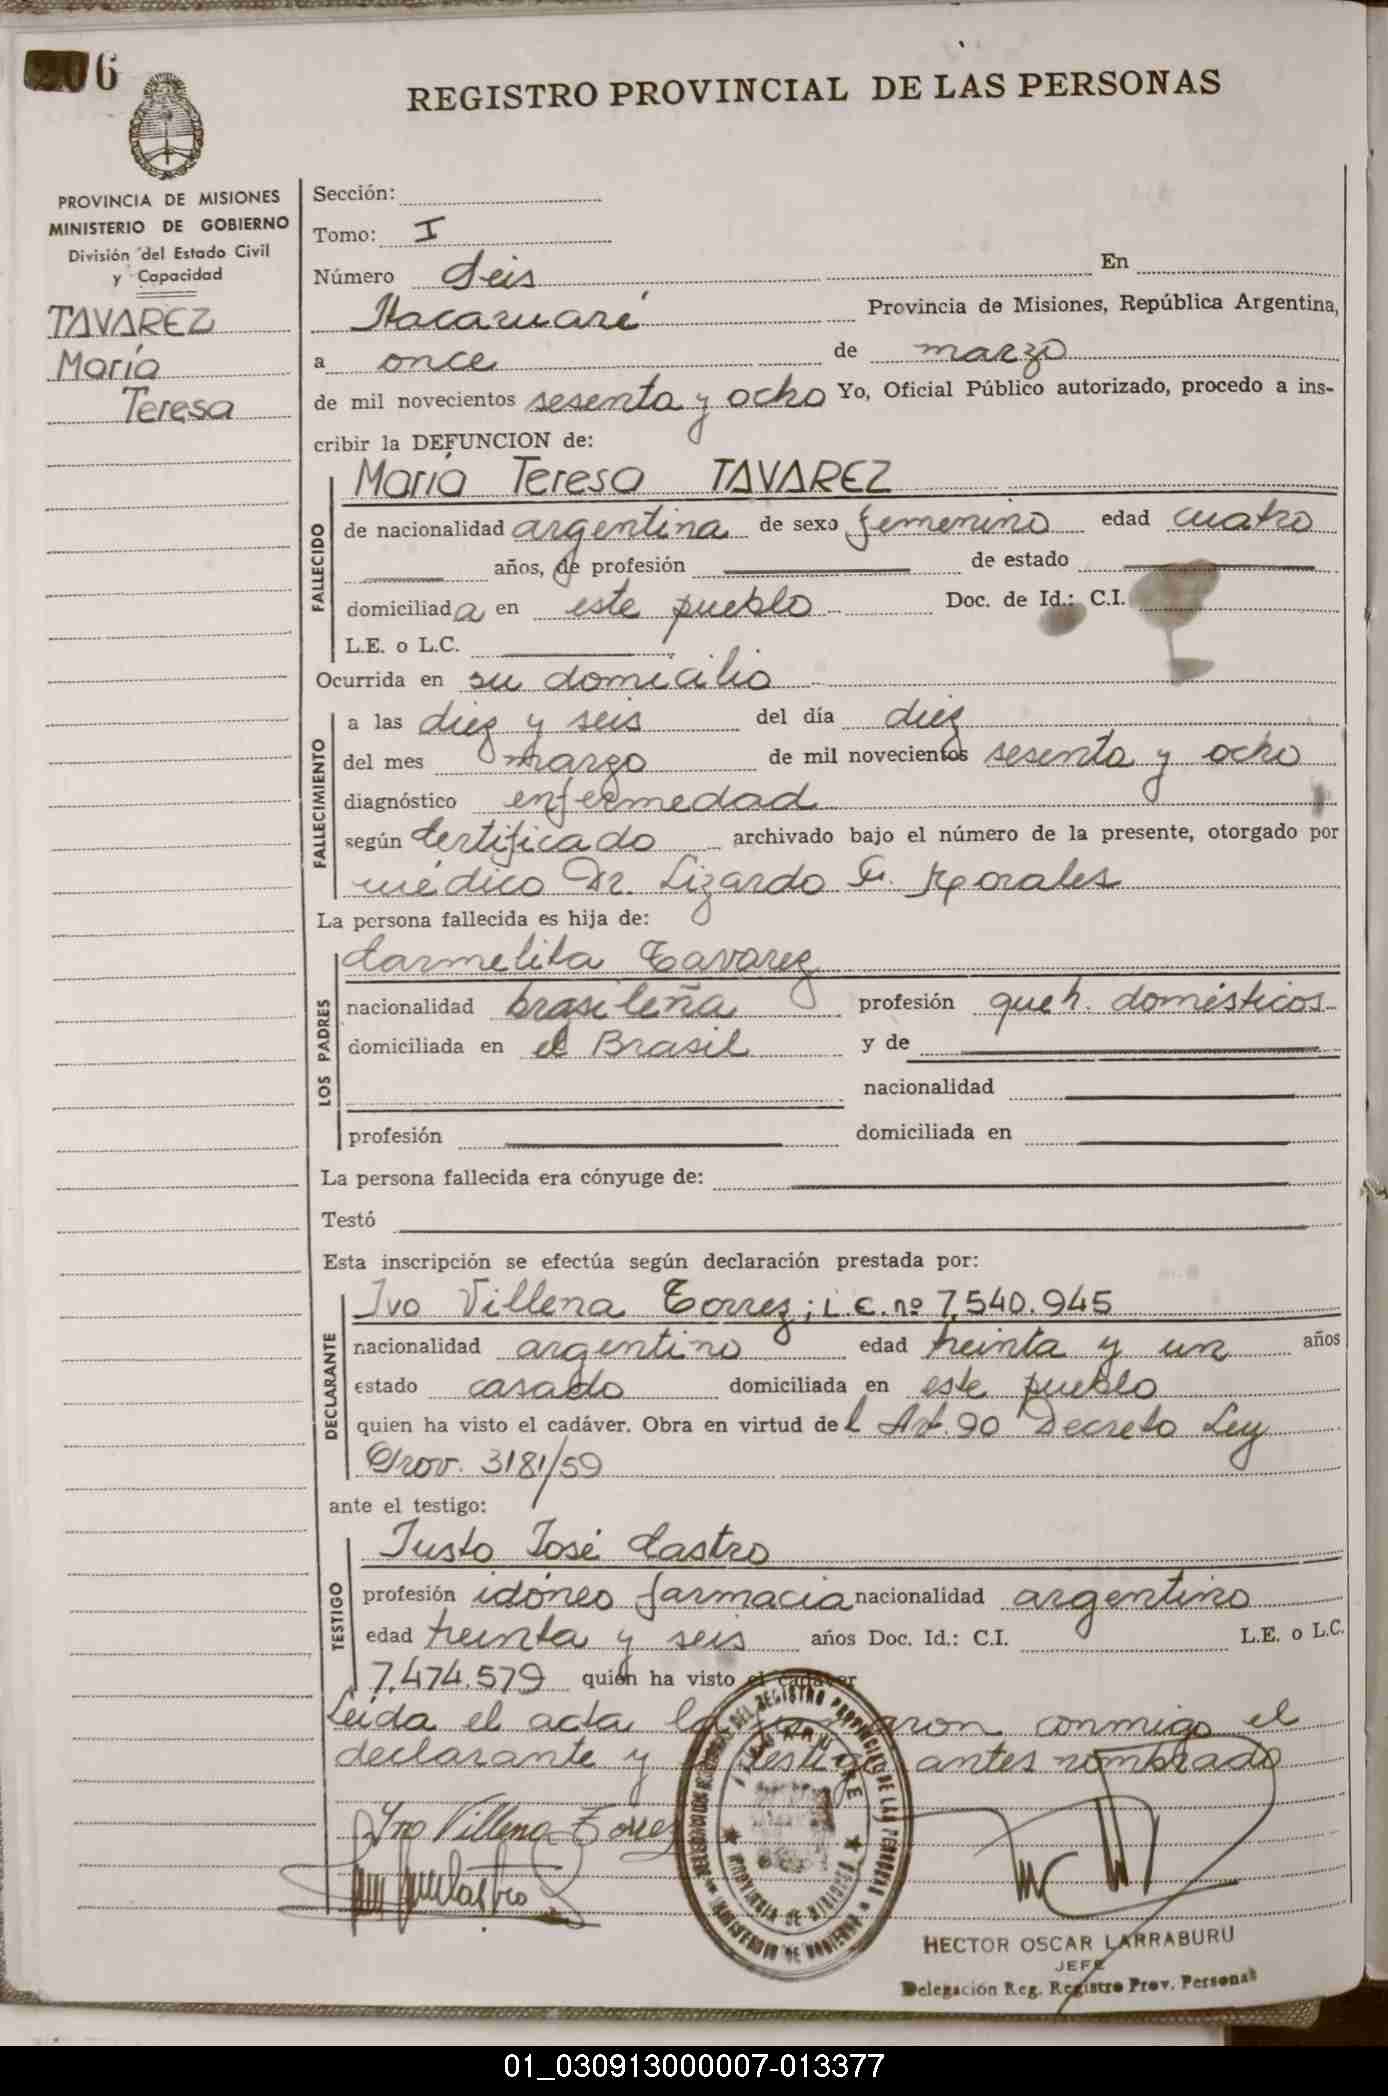 206
REGISTRO PROVINCIAL DE LAS PERSONAS
PROVINCIA DE MISIONES
MINISTERIO DE GOBIERNO
División del Estado Civil
y Capacidad
TAVAREZ
María
Teresa
Sección:
Tomo: I
Número Seis En
Itacaruaré Provincia de Misiones, República Argentina,
a once de marzo
de mil novecientos sesenta y ocho Yo, Oficial Público autorizado, procedo a ins-
cribir la DEFUNCION de:
FALLECIDO
María Teresa TAVAREZ
de nacionalidad argentina de sexo femenino edad cuatro
años, de profesión de estado
domiciliada en este pueblo Doc. de Id.: C.I.
L.E. o L.C.
Ocurrida en su domicilio
FALLECIMIENTO
a las diez y seis del día diez
del mes marzo de mil novecientos sesenta y ocho
diagnóstico enfermedad
según Certificado archivado bajo el número de la presente, otorgado por
médico Dr. Lizardo F. Morales
La persona fallecida es hija de:
LOS PADRES
Carmelita Tavarez
nacionalidad brasileña profesión queh. domésticos
domiciliada en el Brasil y de
nacionalidad
profesión domiciliada en
La persona fallecida era cónyuge de:
Testó
Esta inscripción se efectúa según declaración prestada por:
DECLARANTE
Ivo Villena Torrez; L.E. nº 7.540.945
nacionalidad argentino edad treinta y un años
estado casado domiciliada en este pueblo
quien ha visto el cadáver. Obra en virtud del Art. 90 Decreto Ley
Prov. 3181/59
ante el testigo:
TESTIGO
Justo José Castro
profesión idóneo farmacia nacionalidad argentino
edad treinta y seis años Doc. Id.: C.I. L.E. o L.C.
7.474.579 quien ha visto el cadáver
Leída el acta la firmaron conmigo el
declarante y testigo antes nombrado
Ivo Villena Torrez
DEL REGISTRO PROVINCIAL DE LAS PERSONAS
PROVINCIA DE MISIONES
MINISTERIO DE GOBIERNO
HECTOR OSCAR LARRABURU
JEFE
Delegación Reg. Registro Prov. Personas
01_030913000007-013377